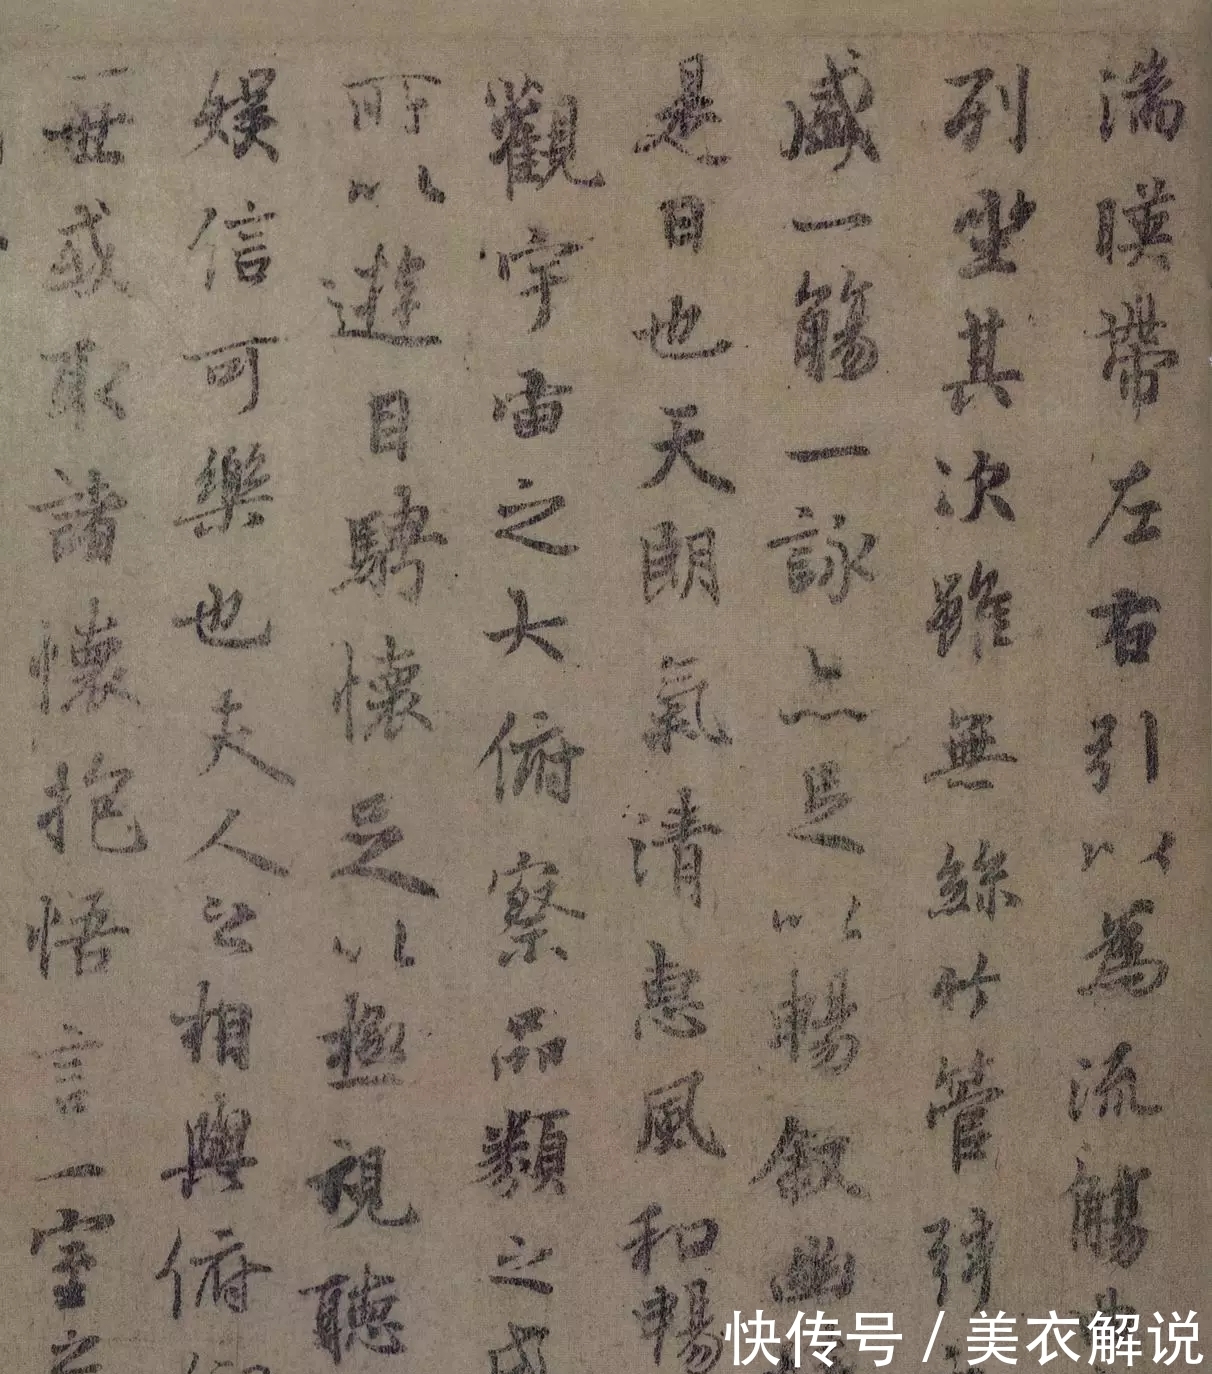 湍暎帶左右引以為流觴曲
列坐其次雖無絲竹管弦
盛一觴一詠亦足以暢敘幽
是日也天朗氣清惠風和暢
觀宇宙之大俯察品類之盛
所以遊目騁懷足以極視聽
娛信可樂也夫人之相與俯仰
一世或取諸懷抱悟言一室之
快传号 / 美衣解说